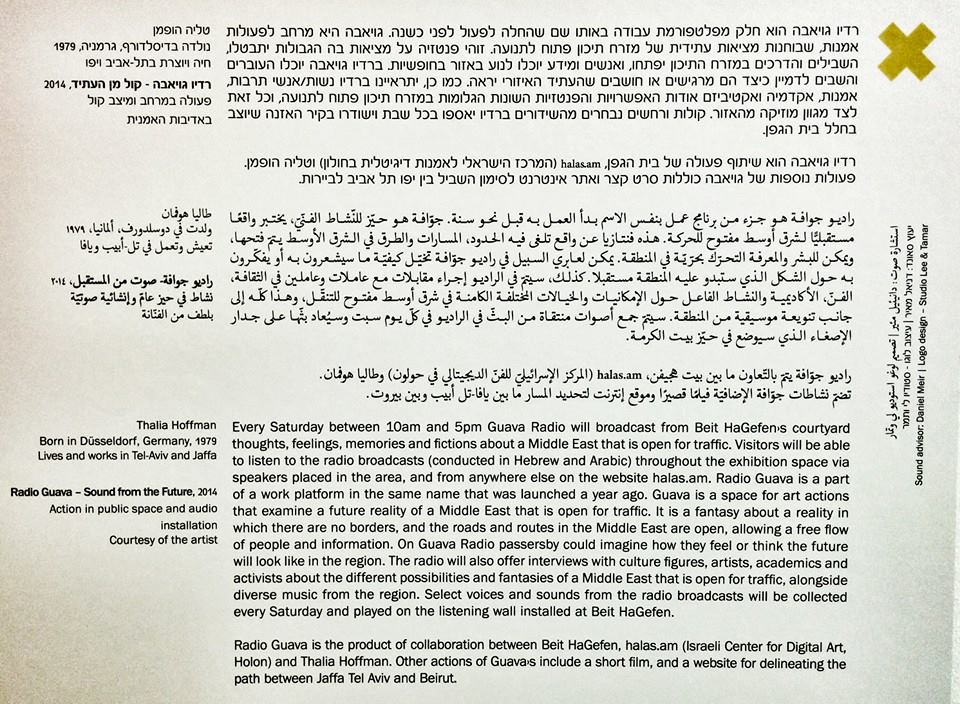 טליה הופמן
נולדה בדיסלדורף, גרמניה, 1979
חיה ויוצרת בתל-אביב ויפו
רדיו גויאבה - קול מן העתיד, 2014
פעולה במרחב ומיצב קול
באדיבות האמנית
רדיו גויאבה הוא חלק מפלטפורמת עבודה באותו שם שהחלה לפעול לפני כשנה. גויאבה היא מרחב לפעולות
אמנות, שבוחנות מציאות עתידית של מזרח תיכון פתוח לתנועה. זוהי פנטזיה על מציאות בה הגבולות יתבטלו,
השבילים והדרכים במזרח התיכון יפתחו, ואנשים ומידע יוכלו לנוע באזור בחופשיות. ברדיו גויאבה יוכלו העוברים
והשבים לדמיין כיצד הם מרגישים או חושבים שהעתיד האיזורי יראה. כמו כן, יתראיינו ברדיו נשות/אנשי תרבות,
אמנות, אקדמיה ואקטיביזם אודות האפשרויות והפנטזיות השונות הגלומות במזרח תיכון פתוח לתנועה, וכל זאת
לצד מגוון מוזיקה מהאזור. קולות ורחשים נבחרים מהשידורים ברדיו יאספו בכל שבת וישודרו בקיר האזנה שיוצב
בחלל בית הגפן.
רדיו גויאבה הוא שיתוף פעולה של בית הגפן, halas.am (המרכז הישראלי לאמנות דיגיטלית בחולון) וטליה הופמן.
פעולות נוספות של גויאבה כוללות סרט קצר ואתר אינטרנט לסימון השביל בין יפו תל אביב לביירות.
طاليا هوفمان
ولدت في دوسلدورف، ألمانيا، ١٩٧٩
تعيش وتعمل في تل-أبيب ويافا
راديو جوافة- صوت من المستقبل، ٢٠١٤
نشاط في حيز عامّ وإنشائية صوتيّة
بلطف من الفنّانة
راديو جوافة هو جزء من برنامج عمل بنفس الاسم بدأ العمل به قبل نحو سنة. جوّافة هو حيّز للنّشاط الفنّيّ، يختبر واقعًا
مستقبليًّا لشرق أوسط مفتوح للحركة. هذه فنتازيا عن واقع تلغى فيه الحدود، المسارات والطرق في الشرق الأوسط يتمّ فتحها،
ويمكن للبشر والمعرفة التحرّك بحرّيّة في المنطقة. يمكن لعابري السبيل في راديو جوّافة تخيّل كيفيّة ما سيشعرون به أو يفكّرون
به حول الشكل الذي ستبدو عليه المنطقة مستقبلا. كذلك، سيتمّ في الراديو إجراء مقابلات مع عاملات وعاملين في الثقافة،
الفنّ، الأكاديمية والنشاط الفاعل حول الإمكانيات والخيالات المختلفة الكامنة في شرق أوسط مفتوح للتنقّل، وهذا كلّه إلى
جانب تنويعة موسيقية من المنطقة. سيتمّ جمع أصوات منتقاة من البثّ في الراديو في كلّ يوم سبت وسيُعاد بثّها على جدار
الإصغاء الذي سيوضع في حيّز بيت الكرمة.
راديو جوّافة يتمّ بالتّعاون ما بين بيت هجيفن، halas.am (المركز الإسرائيليّ للفنّ الديجيتالي في حولون) وطاليا هوفمان.
تضمّ نشاطات جوّافة الإضافيّة فيلمًا قصيرًا وموقع إنترنت لتحديد المسار ما بين يافا-تل أبيب وبين بيروت.
Thalia Hoffman
Born in Düsseldorf, Germany, 1979
Lives and works in Tel-Aviv and Jaffa
Radio Guava – Sound from the Future, 2014
Action in public space and audio
installation
Courtesy of the artist
Every Saturday between 10am and 5pm Guava Radio will broadcast from Beit HaGefen›s courtyard
thoughts, feelings, memories and fictions about a Middle East that is open for traffic. Visitors will be able
to listen to the radio broadcasts (conducted in Hebrew and Arabic) throughout the exhibition space via
speakers placed in the area, and from anywhere else on the website halas.am. Radio Guava is a part
of a work platform in the same name that was launched a year ago. Guava is a space for art actions
that examine a future reality of a Middle East that is open for traffic. It is a fantasy about a reality in
which there are no borders, and the roads and routes in the Middle East are open, allowing a free flow
of people and information. On Guava Radio passersby could imagine how they feel or think the future
will look like in the region. The radio will also offer interviews with culture figures, artists, academics and
activists about the different possibilities and fantasies of a Middle East that is open for traffic, alongside
diverse music from the region. Select voices and sounds from the radio broadcasts will be collected
every Saturday and played on the listening wall installed at Beit HaGefen.
Radio Guava is the product of collaboration between Beit HaGefen, halas.am (Israeli Center for Digital Art,
Holon) and Thalia Hoffman. Other actions of Guava›s include a short film, and a website for delineating the
path between Jaffa Tel Aviv and Beirut.
استشارة صوت: دانييل مئير | تصميم لوغو استوديو لي وتمار
יעוץ סאונד: דניאל מאיר | עיצוב לוגו - סטודיו לי ותמר
Sound advisor: Daniel Meir | Logo design - Studio Lee & Tamar